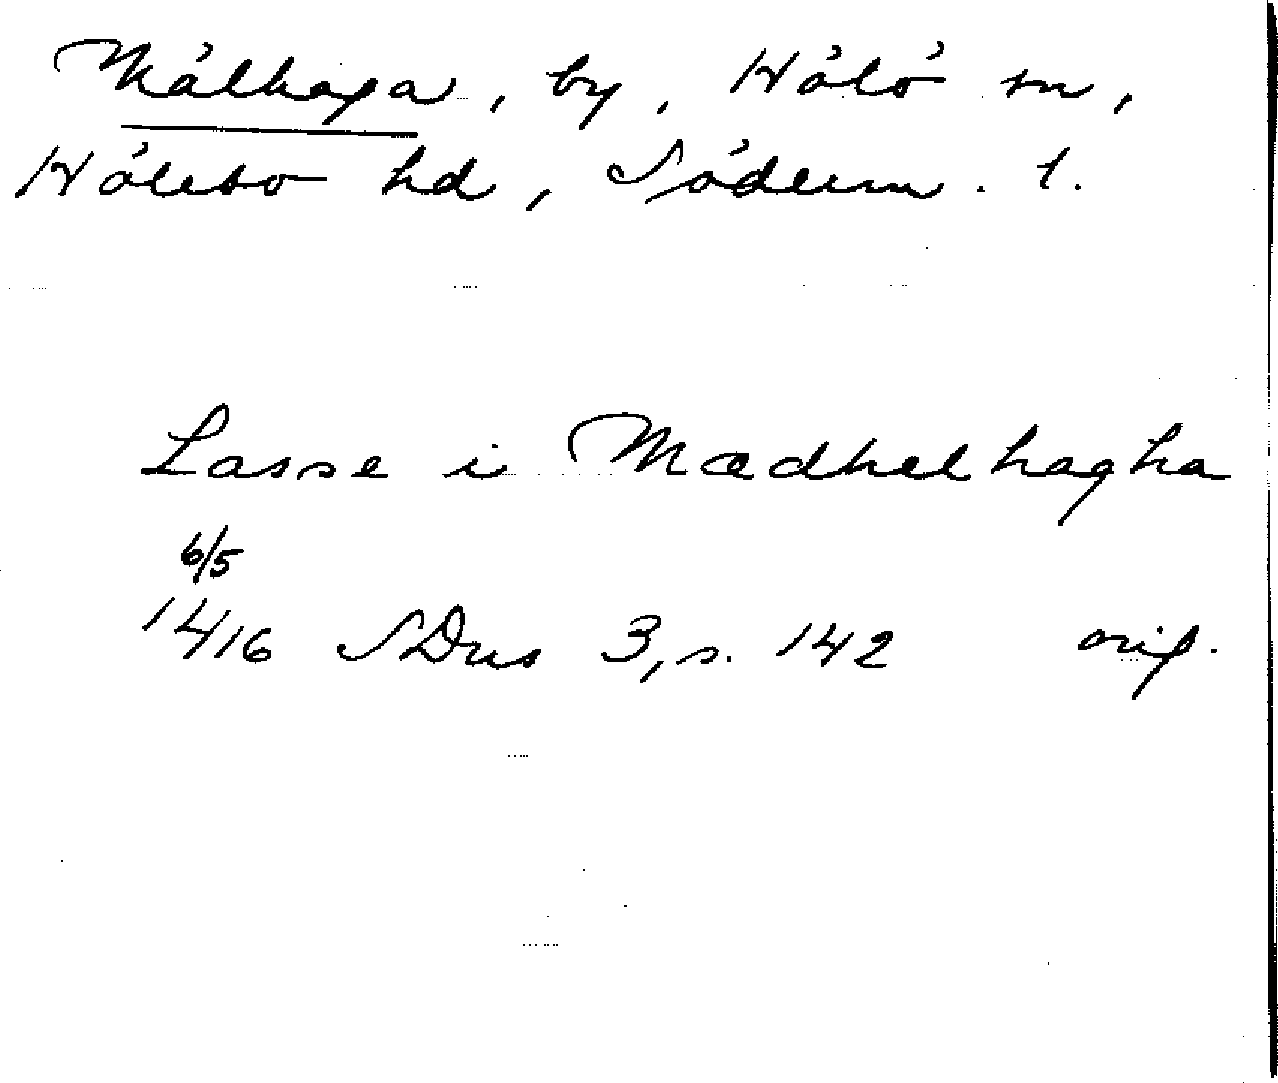 Målhaga, by, Hölö sn,
Hölebo hd, Söderm. l.
Lasse i Mædhelhagha
6/5
1416 SDns 3, s. 142 orig.